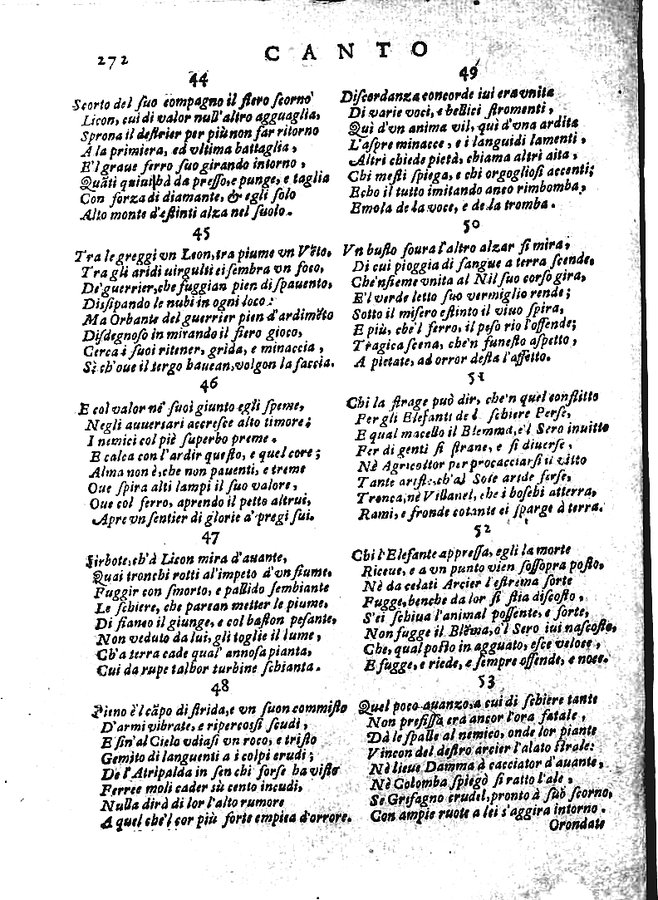 272
CANTO
44
Scorto del suo compagno il fiero scorno
Licon, cui di valor null'altro agguaglia,
Sprona il destrier per più non far ritorno
A la primiera, ed vltima battaglia,
E'l graue ferro suo girando intorno,
Quãti quiui hà da presso, e punge, e taglia
Con forza di diamante, & egli solo
Alto monte d'estinti alza nel suolo.
45
Tra le greggi vn Leon, tra piume vn Vẽto,
Tra gli aridi virgulti ei sembra vn foco,
De' guerrier, che fuggian pien di spauento,
Dissipando le nubi in ogni loco:
Ma Orbante del guerrier pien d'ardimẽto
Disdegnoso in mirando il fiero gioco,
Cerca i suoi ritener, grida, e minaccia,
Sì ch'oue il tergo hauean, volgon la faccia.
46
E col valor ne' suoi giunto egli speme,
Negli auuersari accresce alto timore;
I nemici col piè superbo preme.
E calca con l'ardir questo, e quel core;
Alma non è, che non pauenti, e treme
Oue spira alti lampi il suo valore,
Oue col ferro, aprendo il petto altrui,
Apre vn sentier di glorie a' pregi sui.
47
Sirbote, ch'à Licon mira d'auante,
Quai tronchi rotti al'impeto d'vn fiume,
Fuggir con smorto, e pallido sembiante
Le schiere, che parean metter le piume,
Di fianco il giunge, e col baston pesante,
Non veduto da lui, gli toglie il lume,
Ch'a terra cade qual' annosa pianta,
Cui da rupe talhor turbine schianta.
48
Pieno è'l cãpo di strida, e vn suon commisto
D'armi vibrate, e ripercossi scudi,
E fin'al Cielo vdiasi vn roco, e tristo
Gemito di languenti a i colpi crudi;
De l'Atripalda in sen chi forse ha visto
Ferree moli cader sù cento incudi,
Nulla dirà di lor l'alto rumore
A quel che'l cor più forte empiea d'orrore.
49
Discordanza concorde iui era vnita
Di varie voci, e bellici stromenti,
Quì d'vn anima vil, quì d'vna ardita
L'aspre minacce, e i languidi lamenti,
Altri chiede pietà, chiama altri aita,
Chi mesti spiega, e chi orgogliosi accenti;
Echo il tutto imitando anco rimbomba,
Emola de la voce, e de la tromba.
50
Vn busto soura l'altro alzar si mira,
Di cui pioggia di sangue a terra scende,
Che'nsieme vnita al Nil suo corso gira,
E'l verde letto suo vermiglio rende;
Sotto il misero estinto il viuo spira,
E più, che'l ferro, il peso rio l'offende;
Tragica scena, che'n funesto aspetto,
A pietate, ad orror desta l'affetto.
51
Chi la strage può dir, che'n quel conflitto
Per gli Elefanti de l schiere Perse,
E qual macello il Blemma, e'l Sero inuitto
Fer di genti sì strane, e sì diuerse,
Nè Agricoltor per procacciarsi il vitto
Tante ariste, ch'al Sole aride ferse,
Tronca, nè Villanel, che i boschi atterra,
Rami, e fronde cotante ei sparge à terra.
52
Chi l'Elefante appressa, egli la morte
Riceue, e a vn punto vien sossopra posto,
Nè da celati Arcier l'estrema sorte
Fugge, benche da lor si stia discosto,
S'ei schiua l'animal possente, e forte,
Non fugge il Blẽma, o'l Sero iui nascosto,
Che, qual posto in agguato, esce veloce,
E fugge, e riede, e sempre offende, e noce.
53
Quel poco auanzo, a cui di schiere tante
Non prefissa era ancor l'ora fatale,
Dà le spalle al nemico, onde lor piante
Vincon del destro arcier l'alato strale:
Nè lieue Damma à cacciator d'auante,
Nè Colomba spiegò sì ratto l'ale,
Se Grifagno crudel, pronto à sub scorno,
Con ampie ruote a lei s'aggira intorno.
Orondate